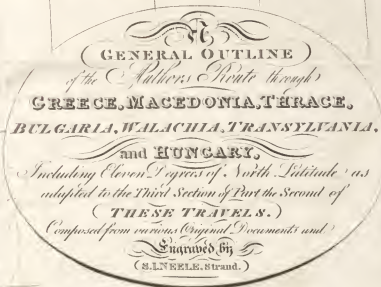 A
GENERAL OUTLINE
of the Authors Route through
GREECE, MACEDONIA, THRACE,
BULGARIA, WALACHIA, TRANSYLVANIA,
and HUNGARY,
Including Eleven Degrees of North Latitude as
adapted to the Third Section of Part the Second of
THESE TRAVELS.
Composed from various Original Documents and
Engraved by
(S.I.NEELE. Strand.)